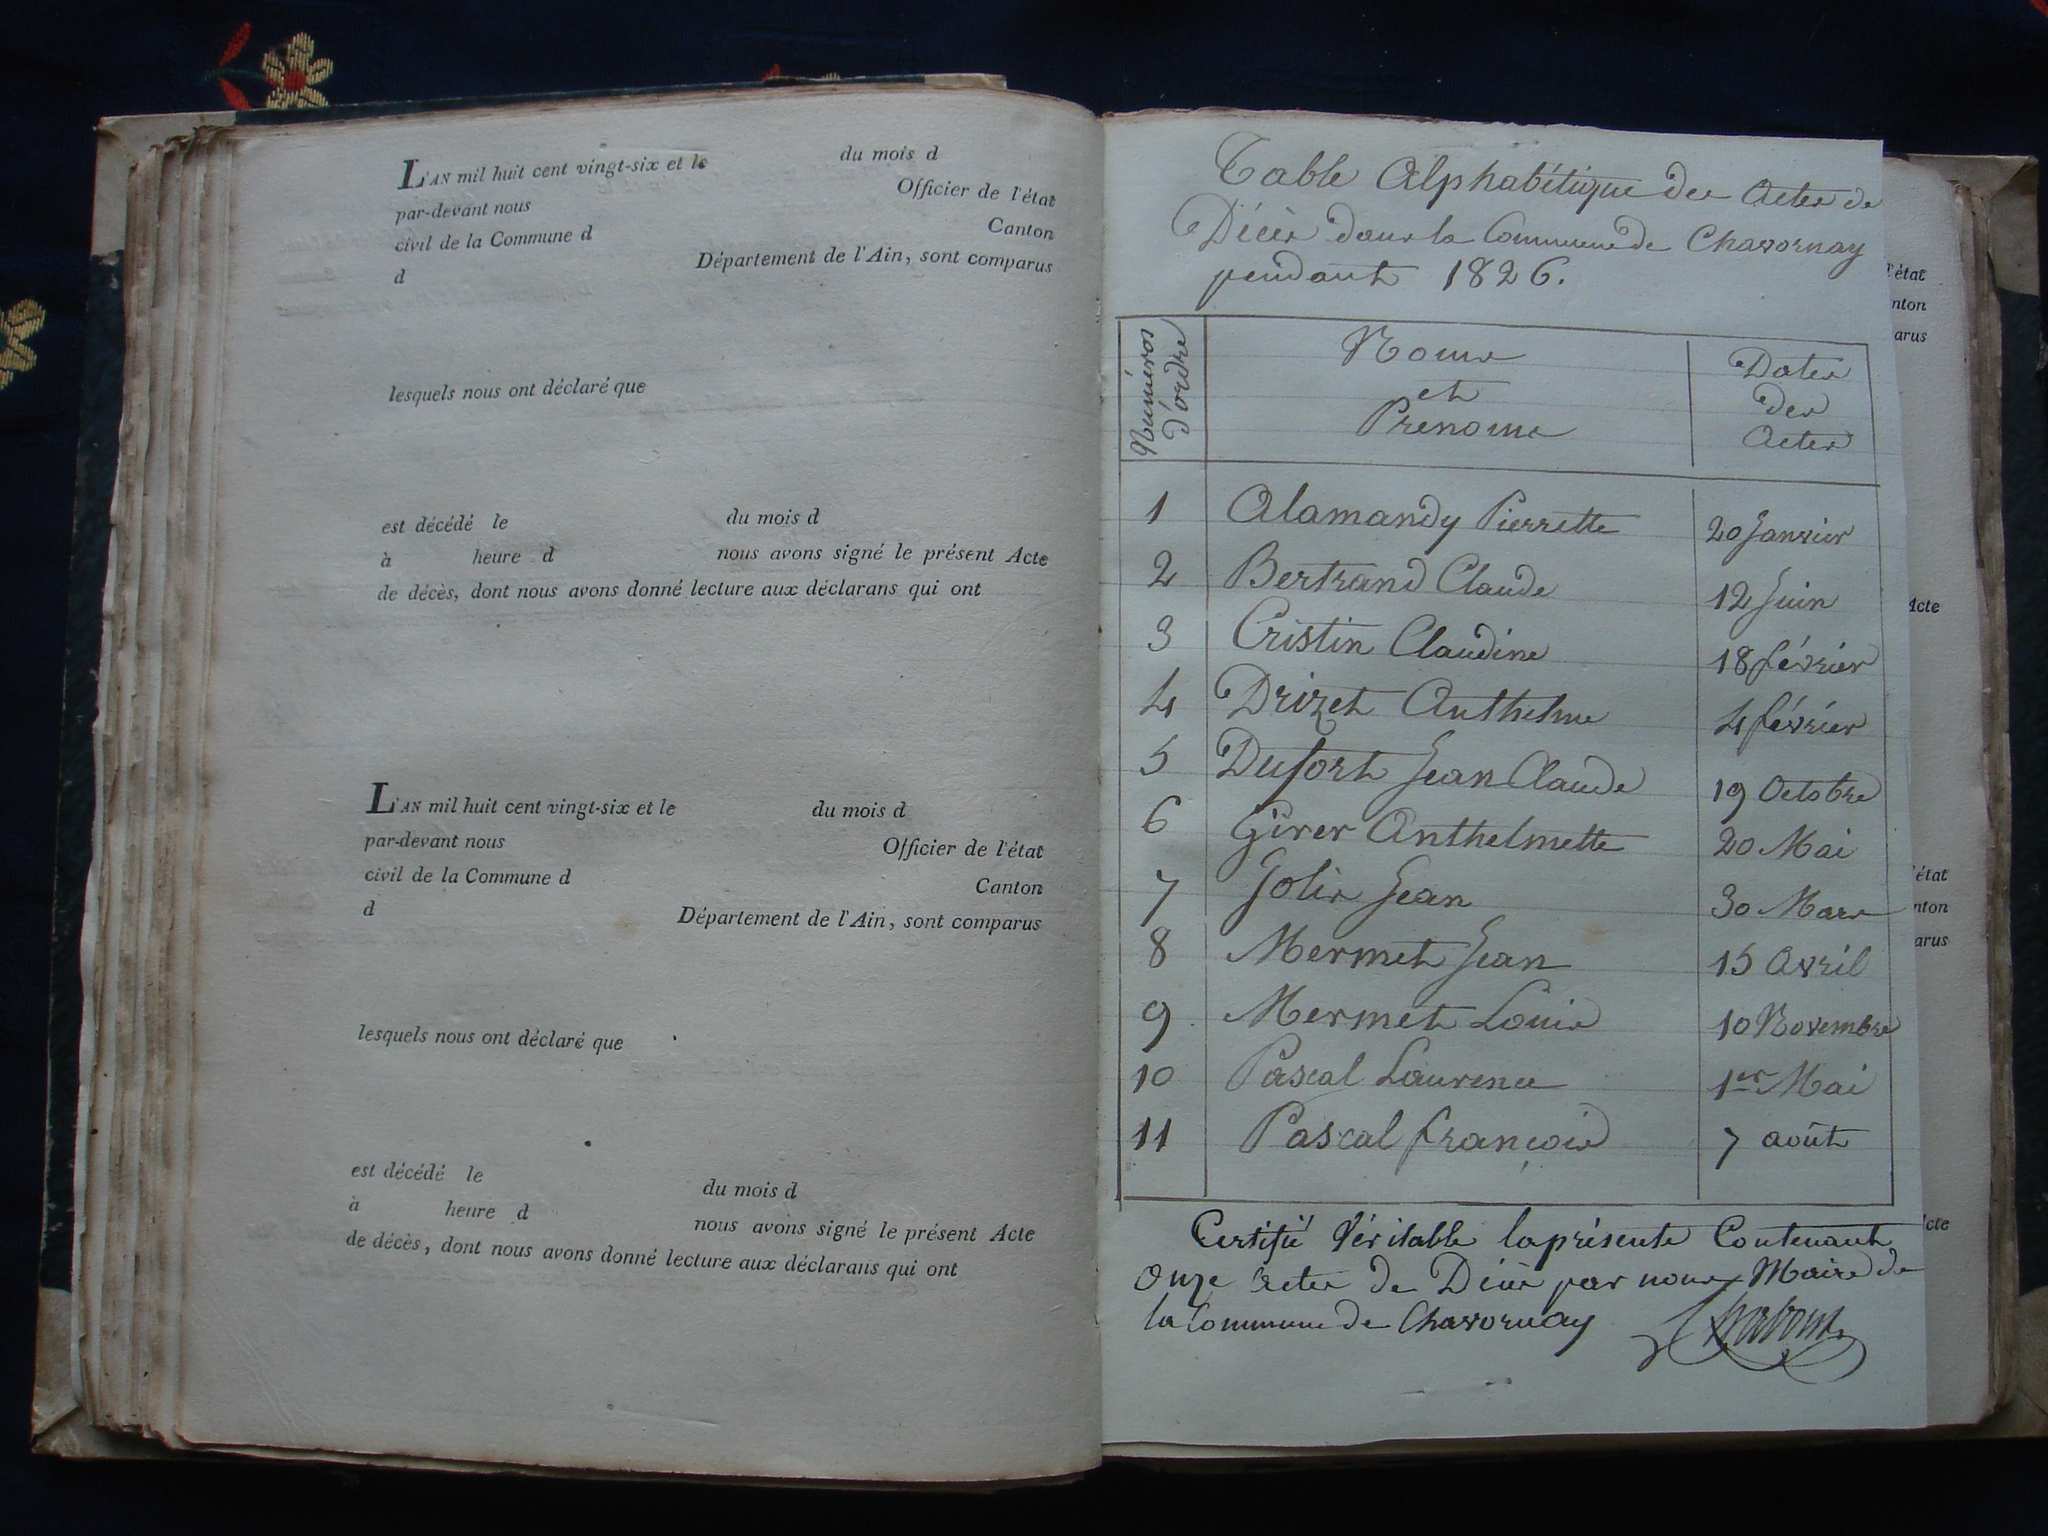 L'AN mil huit cent vingt-six et le du mois d
par-devant nous Officier de l'état
civil de la Commune d Canton
d Département de l'Ain, sont comparus
lesquels nous ont déclaré que
est décédé le du mois d
à heure d nous avons signé le présent Acte
de décès, dont nous avons donné lecture aux déclarans qui ont
L'AN mil huit cent vingt-six et le du mois d
par-devant nous Officier de l'état
civil de la Commune d Canton
d Département de l'Ain, sont comparus
lesquels nous ont déclaré que
est décédé le du mois d
à heure d nous avons signé le présent Acte
de décès, dont nous avons donné lecture aux déclarans qui ont
Table Alphabétique des Actes de
Décès dans la Commune de Chavornay
pendant 1826.
Numéros d'ordre
Noms et Prenoms
Dates des Actes
1 Alamandy Pierrette 20 Janvier
2 Bertrand Claude 12 Juin
3 Cristin Claudine 18 février
4 Drizet Anthelme 4 février
5 Dufort Jean Claude 19 Octobre
6 Girer Anthelmette 20 Mai
7 Jolis Jean 30 Mars
8 Mermet Jean 15 Avril
9 Mermet Louis 10 Novembre
10 Pascal Laurence 1er Mai
11 Pascal françois 7 août
Certifié Véritable la présente Contenant
Onze Actes de Décès par nous Maire de
la Commune de Chavornay
l'état
nton
arus
Acte
l'état
nton
arus
Acte